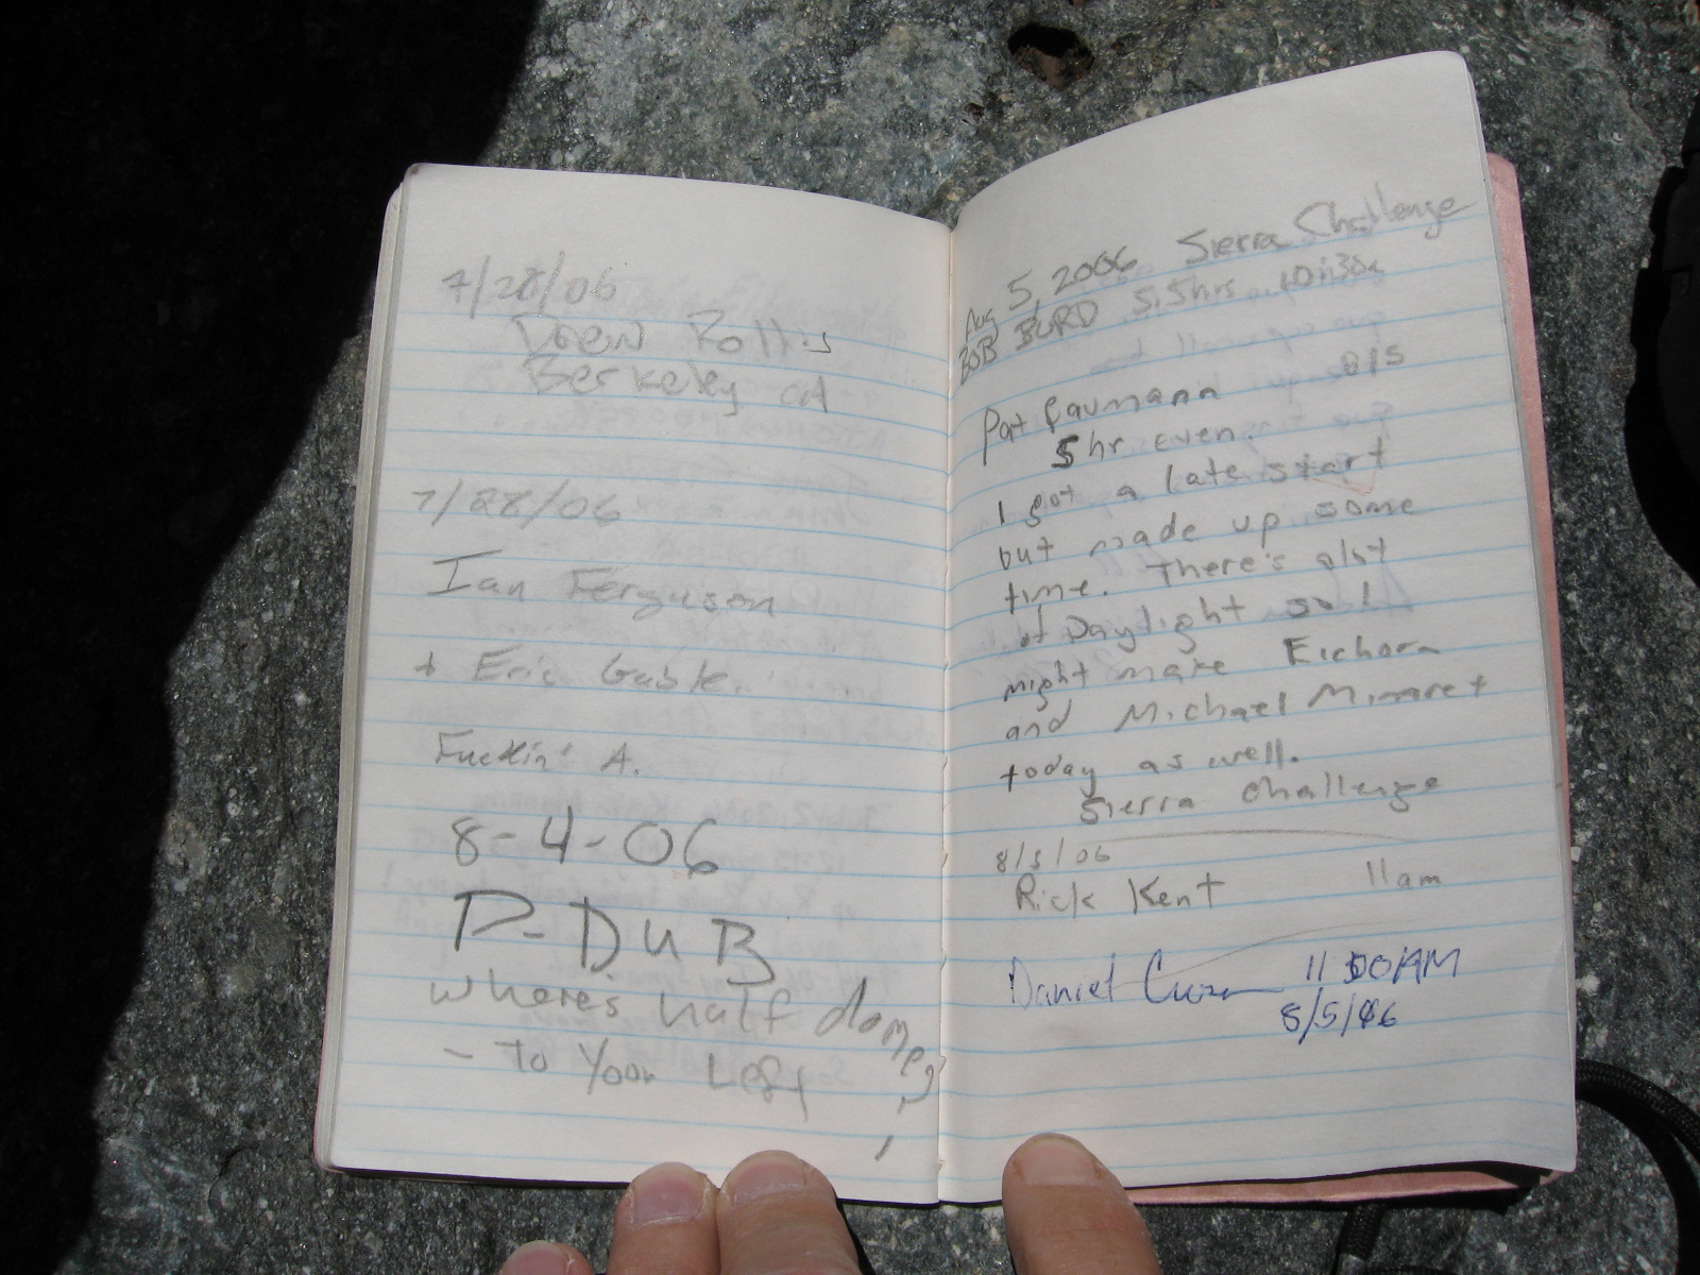 7/28/06
Drew Rollis
Berkeley CA
7/28/06
Ian Ferguson
+ Eric Gable.
Fuckin' A.
8-4-06
P-DUB
where's half dome?
- To Your Left
Aug 5, 2006 Sierra Challenge
BOB BURD 5.5hrs 10:30a
Pat 8/5
5 hr even.
I got a late start
but made up some
time. There's alot
of Daylight so I
might make Eichorn
and Michael Minaret
today as well.
Sierra challenge
8/5/06
Rick Kent 11am
Daniel 11 00 AM
8/5/06